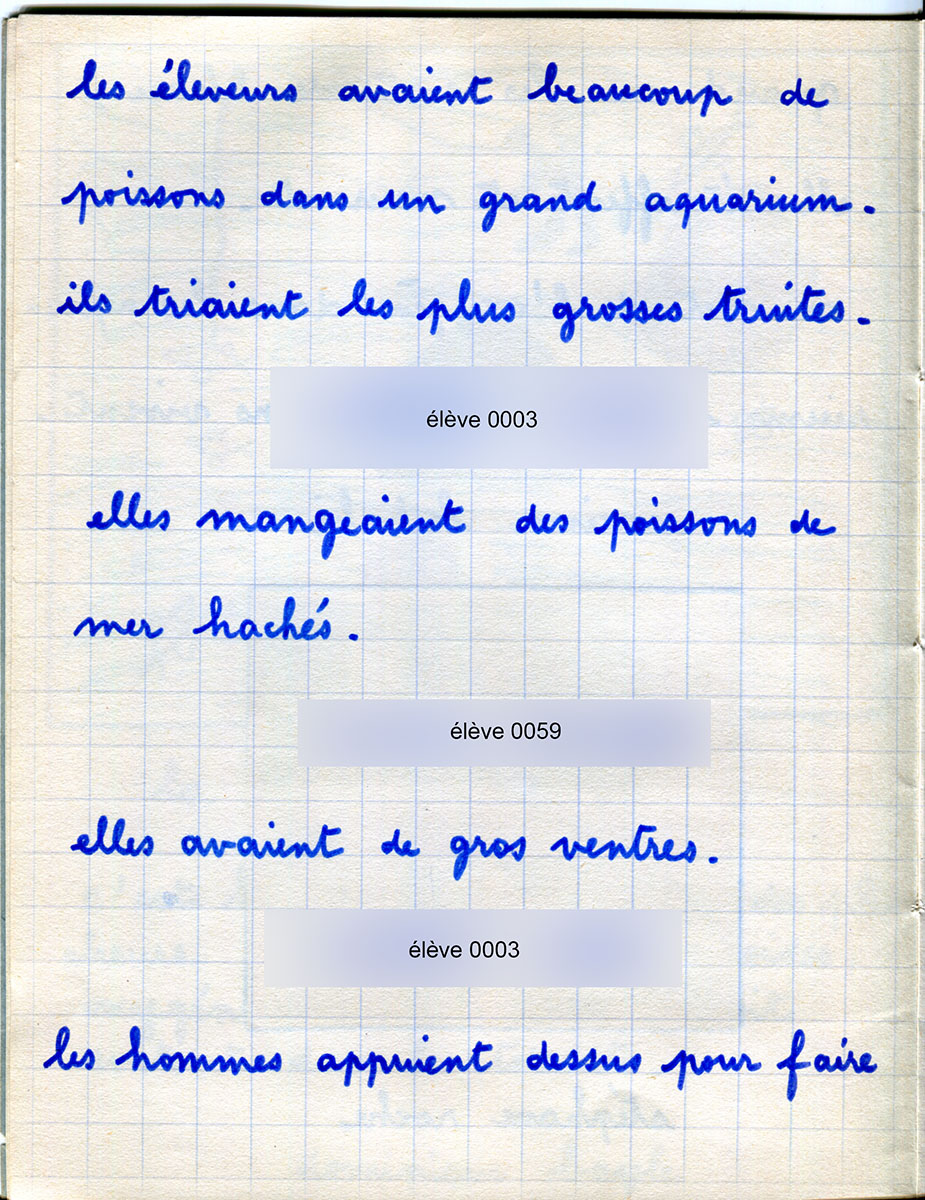 les éleveurs avaient beaucoup de
poissons dans un grand aquarium.
ils triaient les plus grosses truites.
élève 0003
elles mangeaient des poissons de
mer hachés.
élève 0059
elles avaient de gros ventres.
élève 0003
les hommes appuient dessus pour faire